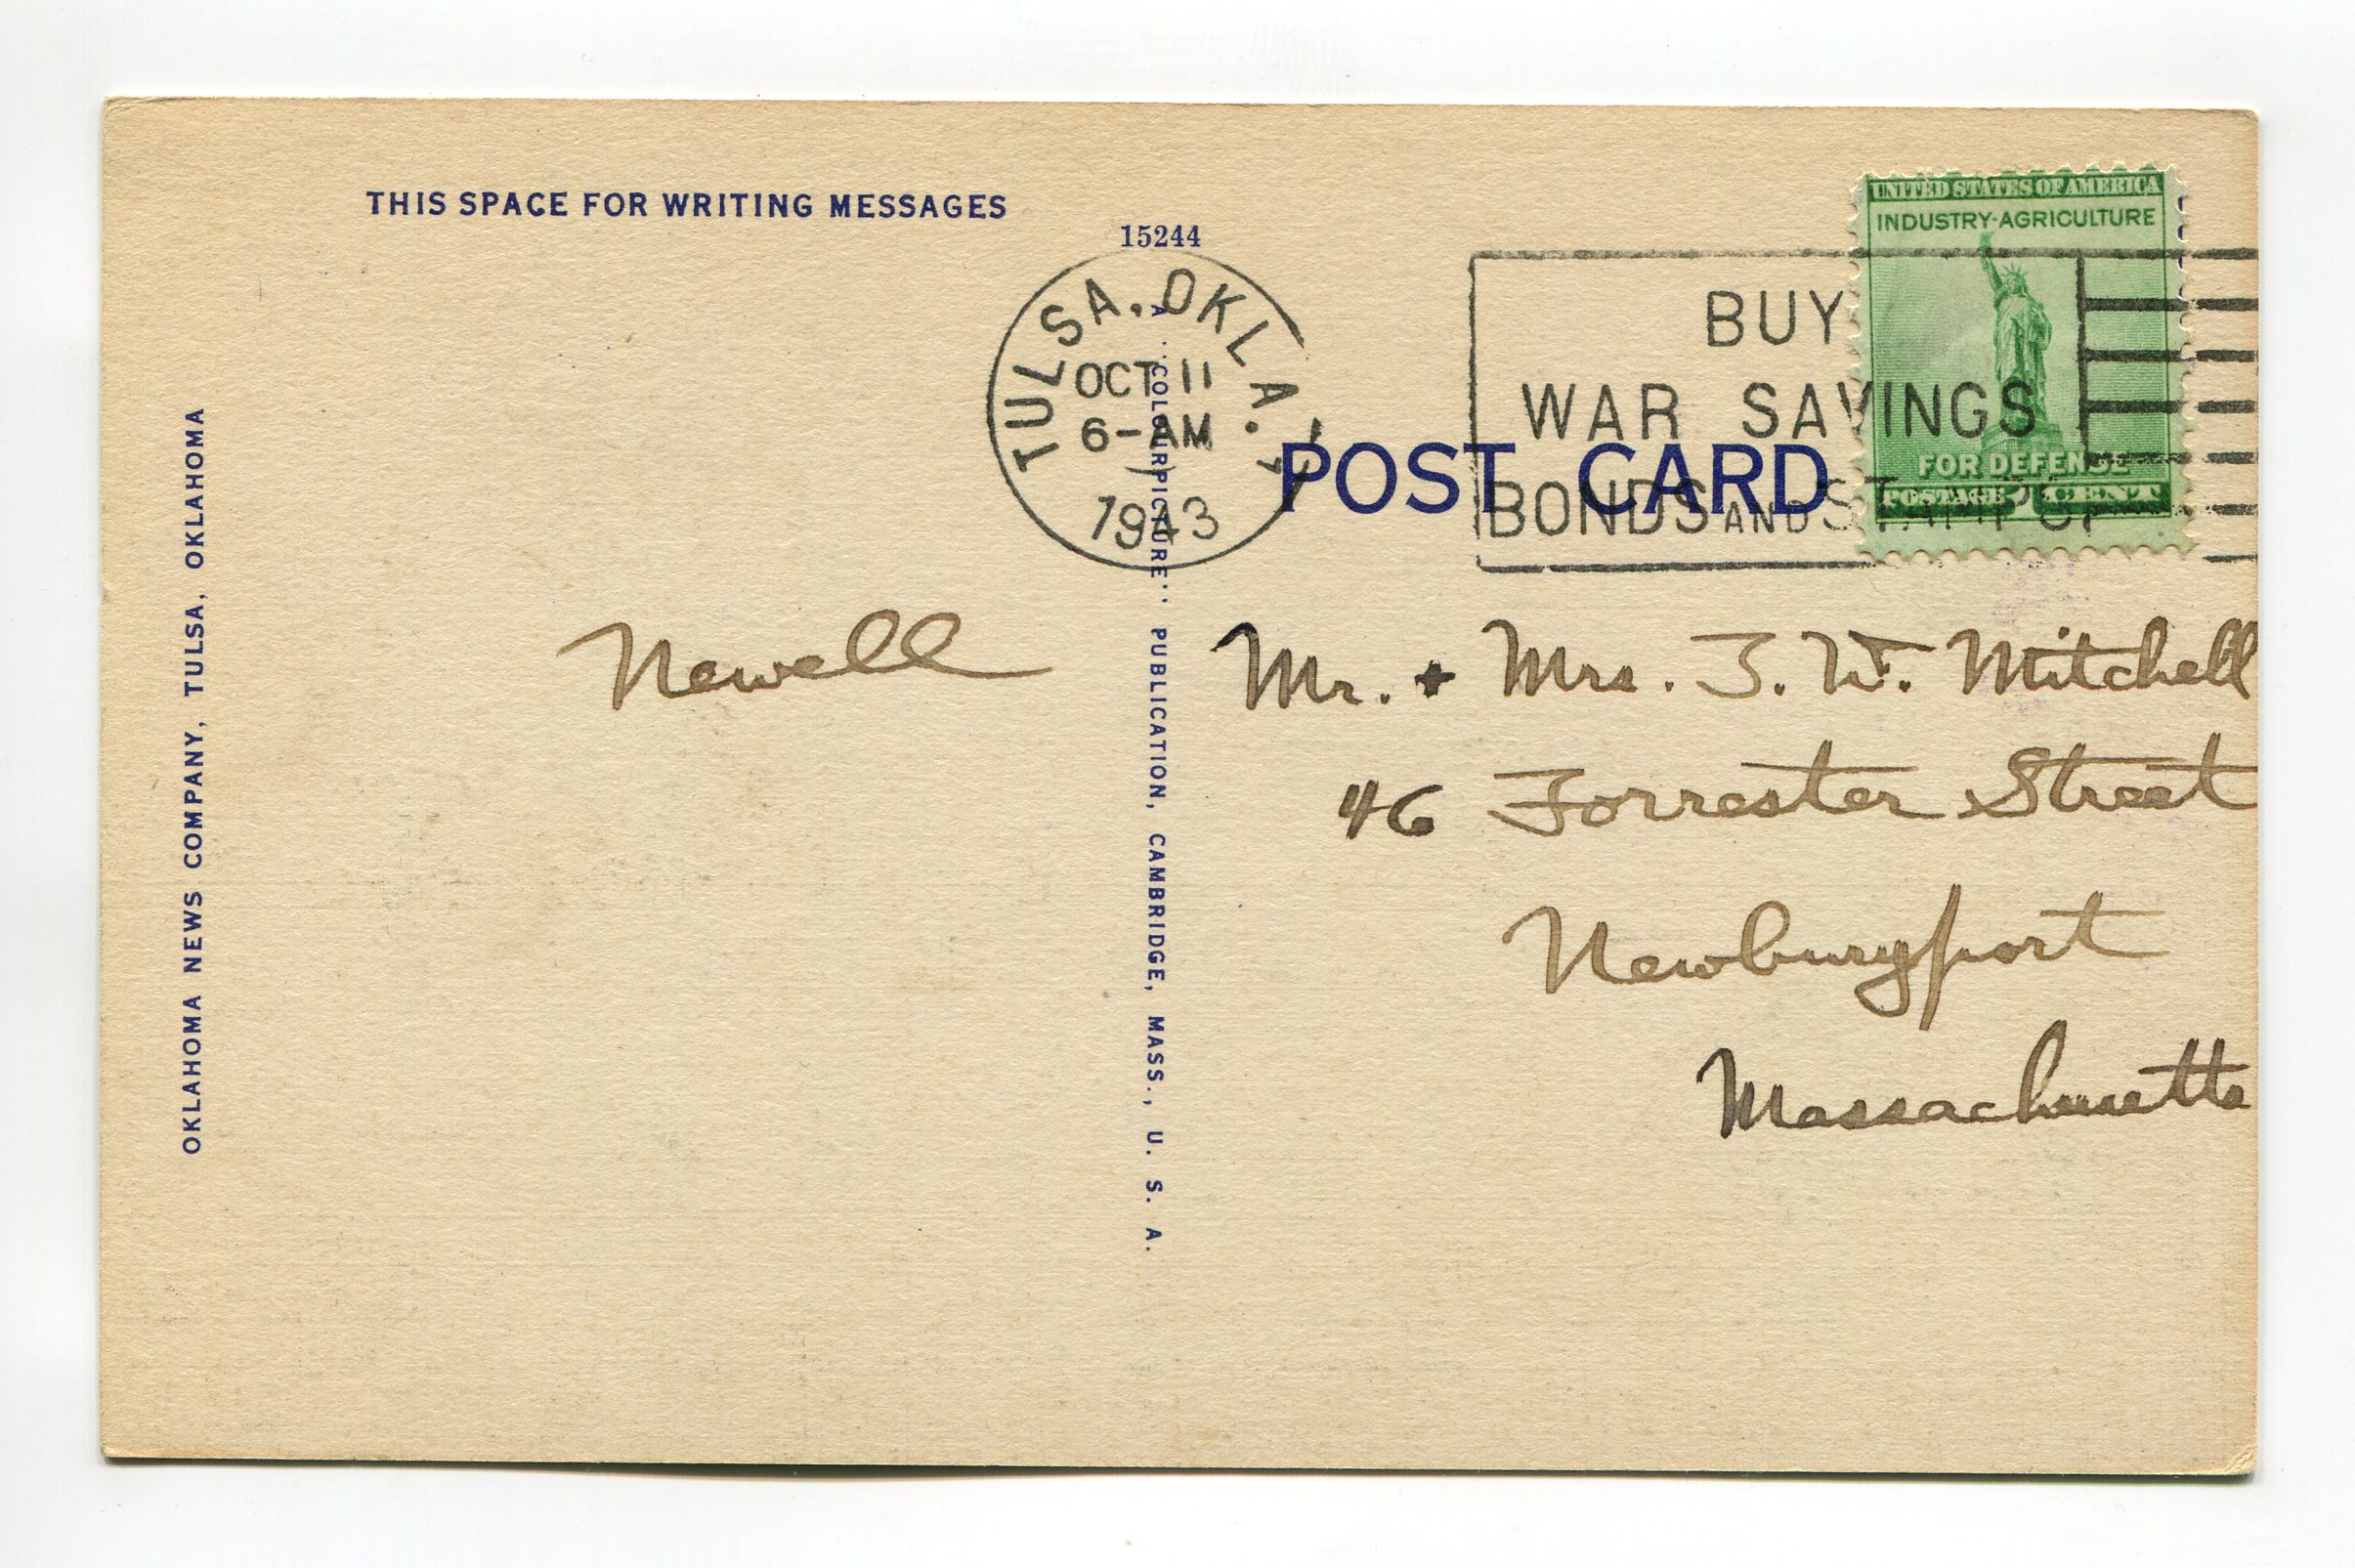 THIS SPACE FOR WRITING MESSAGES
15244
TULSA, OKLA.
OCT 11
6-AM
1943
BUY
WAR SAVINGS
BONDS AND STAMPS
UNITED STATES OF AMERICA
INDUSTRY·AGRICULTURE
FOR DEFENSE
POSTAGE 1 CENT
POST CARD
OKLAHOMA NEWS COMPANY, TULSA, OKLAHOMA
A "COLOURPICTURE" PUBLICATION, CAMBRIDGE, MASS., U. S. A.
Newell
Mr. + Mrs. T. W. Mitchell
46 Forrester Street
Newburyport
Massachusetts